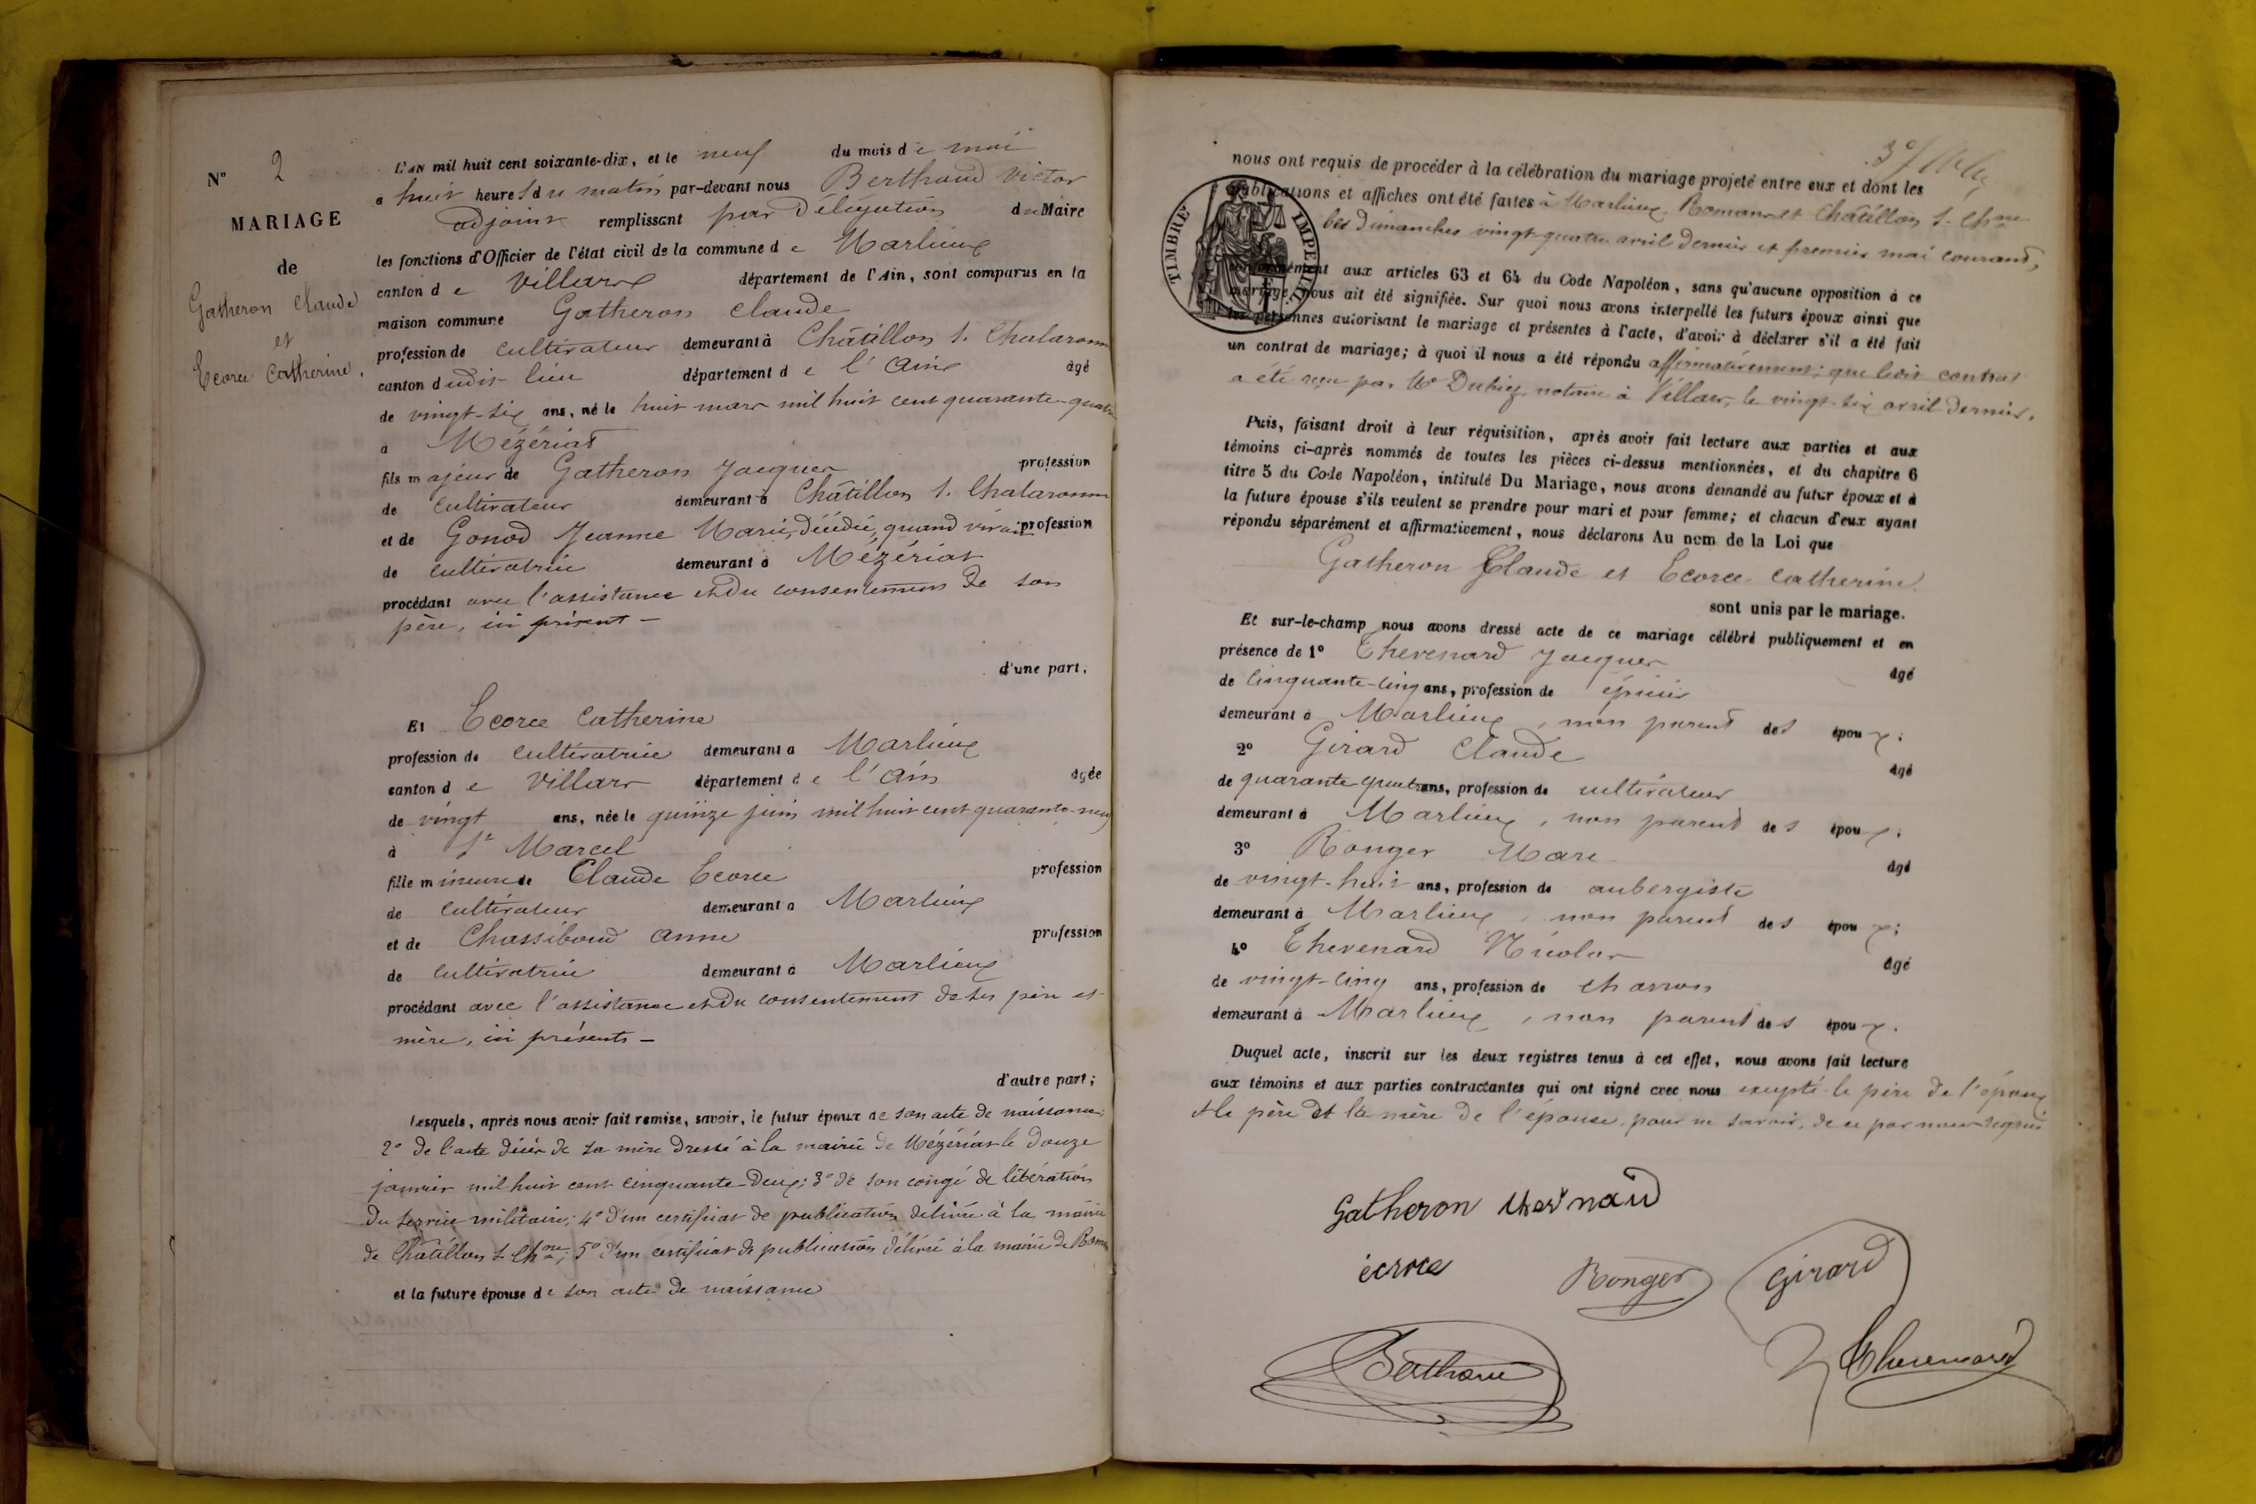 N° 2
MARIAGE
de
Gatheron Claude
et
Ecoree Catherine.
L'AN mil huit cent soixante-dix, et le neuf du mois de mai
a huit heures du matin par-devant nous Berthaud Victor
adjoint remplissant par Délégation du Maire
les fonctions d'Officier de l'état civil de la commune de Marlieux
canton de Villars département de l'Ain, sont comparus en la
maison commune Gatheron Claude
profession de cultivateur demeurant à Châtillon s. Chalaronne
canton dudit lieu département de l'Ain âgé
de vingt-six ans, né le huit mars mil huit cent quarante-quatre
a Mézériat
fils majeur de Gatheron Jacques profession
de cultivateur demeurant à Châtillon s. Chalaronne
et de Gonod Jeanne Marie, décédée, quand vivait profession
de cultivatrice demeurant à Mézériat
procédant avec l'assistance et du consentement de son
père, ici présent —
d'une part,
Et Ecoree Catherine
profession de cultivatrice demeurant a Marlieux
canton de Villars département de l'Ain agée
de vingt ans, née le quinze juin mil huit cent quarante-neuf
à St Marcel
fille mineure de Claude Ecoree profession
de cultivateur demeurant a Marlieux
et de Chassiboud Anne profession
de cultivatrice demeurant à Marlieux
procédant avec l'assistance et du consentement de ses père et
mère, ici présents —
d'autre part;
Lesquels, après nous avoir fait remise, savoir, le futur époux de son acte de naissance;
2° de l'acte décès de sa mère dressé à la mairie de Mézériat le douze
janvier mil huit cent cinquante-deux; 3° de son congé de libération
du service militaire; 4° d'un certificat de publication délivré à la mairie
de Châtillon s. Chne; 5° d'un certificat de publication délivré à la mairie de Romans
et la future épouse de son acte de naissance
nous ont requis de procéder à la célébration du mariage projeté entre eux et dont les
publications et affiches ont été faites à Marlieux, Romans et Châtillon s. Chne
les dimanches vingt-quatre avril dernier et premier mai courant,
TIMBRE IMPÉRIAL
conformément aux articles 63 et 64 du Code Napoléon, sans qu'aucune opposition à ce
mariage nous ait été signifiée. Sur quoi nous avons interpellé les futurs époux ainsi que
les personnes autorisant le mariage et présentes à l'acte, d'avoir à déclarer s'il a été fait
un contrat de mariage; à quoi il nous a été répondu affirmativement; que ledit contrat
a été reçu par Me notaire à Villars, le vingt-six avril dernier.
Puis, faisant droit à leur réquisition, après avoir fait lecture aux parties et aux
témoins ci-après nommés de toutes les pièces ci-dessus mentionnées, et du chapitre 6
titre 5 du Code Napoléon, intitulé Du Mariage, nous avons demandé au futur époux et à
la future épouse s'ils veulent se prendre pour mari et pour femme; et chacun d'eux ayant
répondu séparément et affirmativement, nous déclarons Au nom de la Loi que
Gatheron Claude et Ecoree Catherine
sont unis par le mariage.
Et sur-le-champ nous avons dressé acte de ce mariage célébré publiquement et en
présence de 1° Thevenard Jacques âgé
de cinquante-cinq ans, profession de épicier
demeurant à Marlieux, non parent des époux;
2° Girard Claude âgé
de quarante-quatre ans, profession de cultivateur
demeurant à Marlieux, non parent des époux;
3° Ronger Marc âgé
de vingt-huit ans, profession de aubergiste
demeurant à Marlieux, non parent des époux;
4° Thevenard Nicolas âgé
de vingt-cinq ans, profession de charron
demeurant à Marlieux, non parent des époux.
Duquel acte, inscrit sur les deux registres tenus à cet effet, nous avons fait lecture
aux témoins et aux parties contractantes qui ont signé avec nous excepté le père de l'époux
et le père et la mère de l'épouse, pour ne savoir, de ce par nous requis
Gatheron
Ronger Girard
Berthaud Thevenard